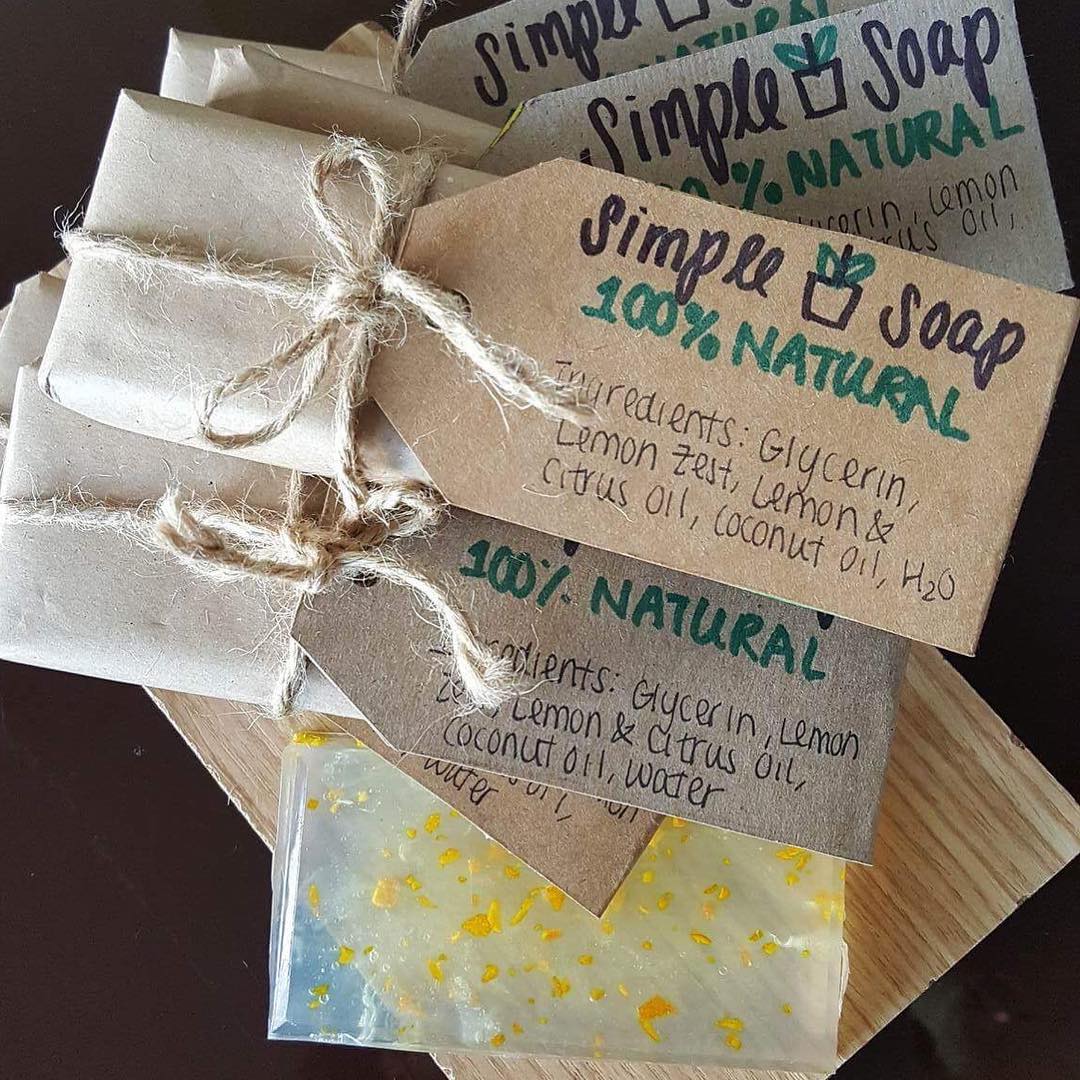 Simple
NATURAL
Simple Soap
% NATURAL
Glycerin, Lemon
Citrus Oil,
Simple Soap
100% NATURAL
Ingredients: Glycerin,
Lemon Zest, Lemon &
Citrus Oil, Coconut Oil, H₂O
100% NATURAL
Ingredients: Glycerin, Lemon
Zest, Lemon & Citrus Oil,
Coconut Oil, Water
Water